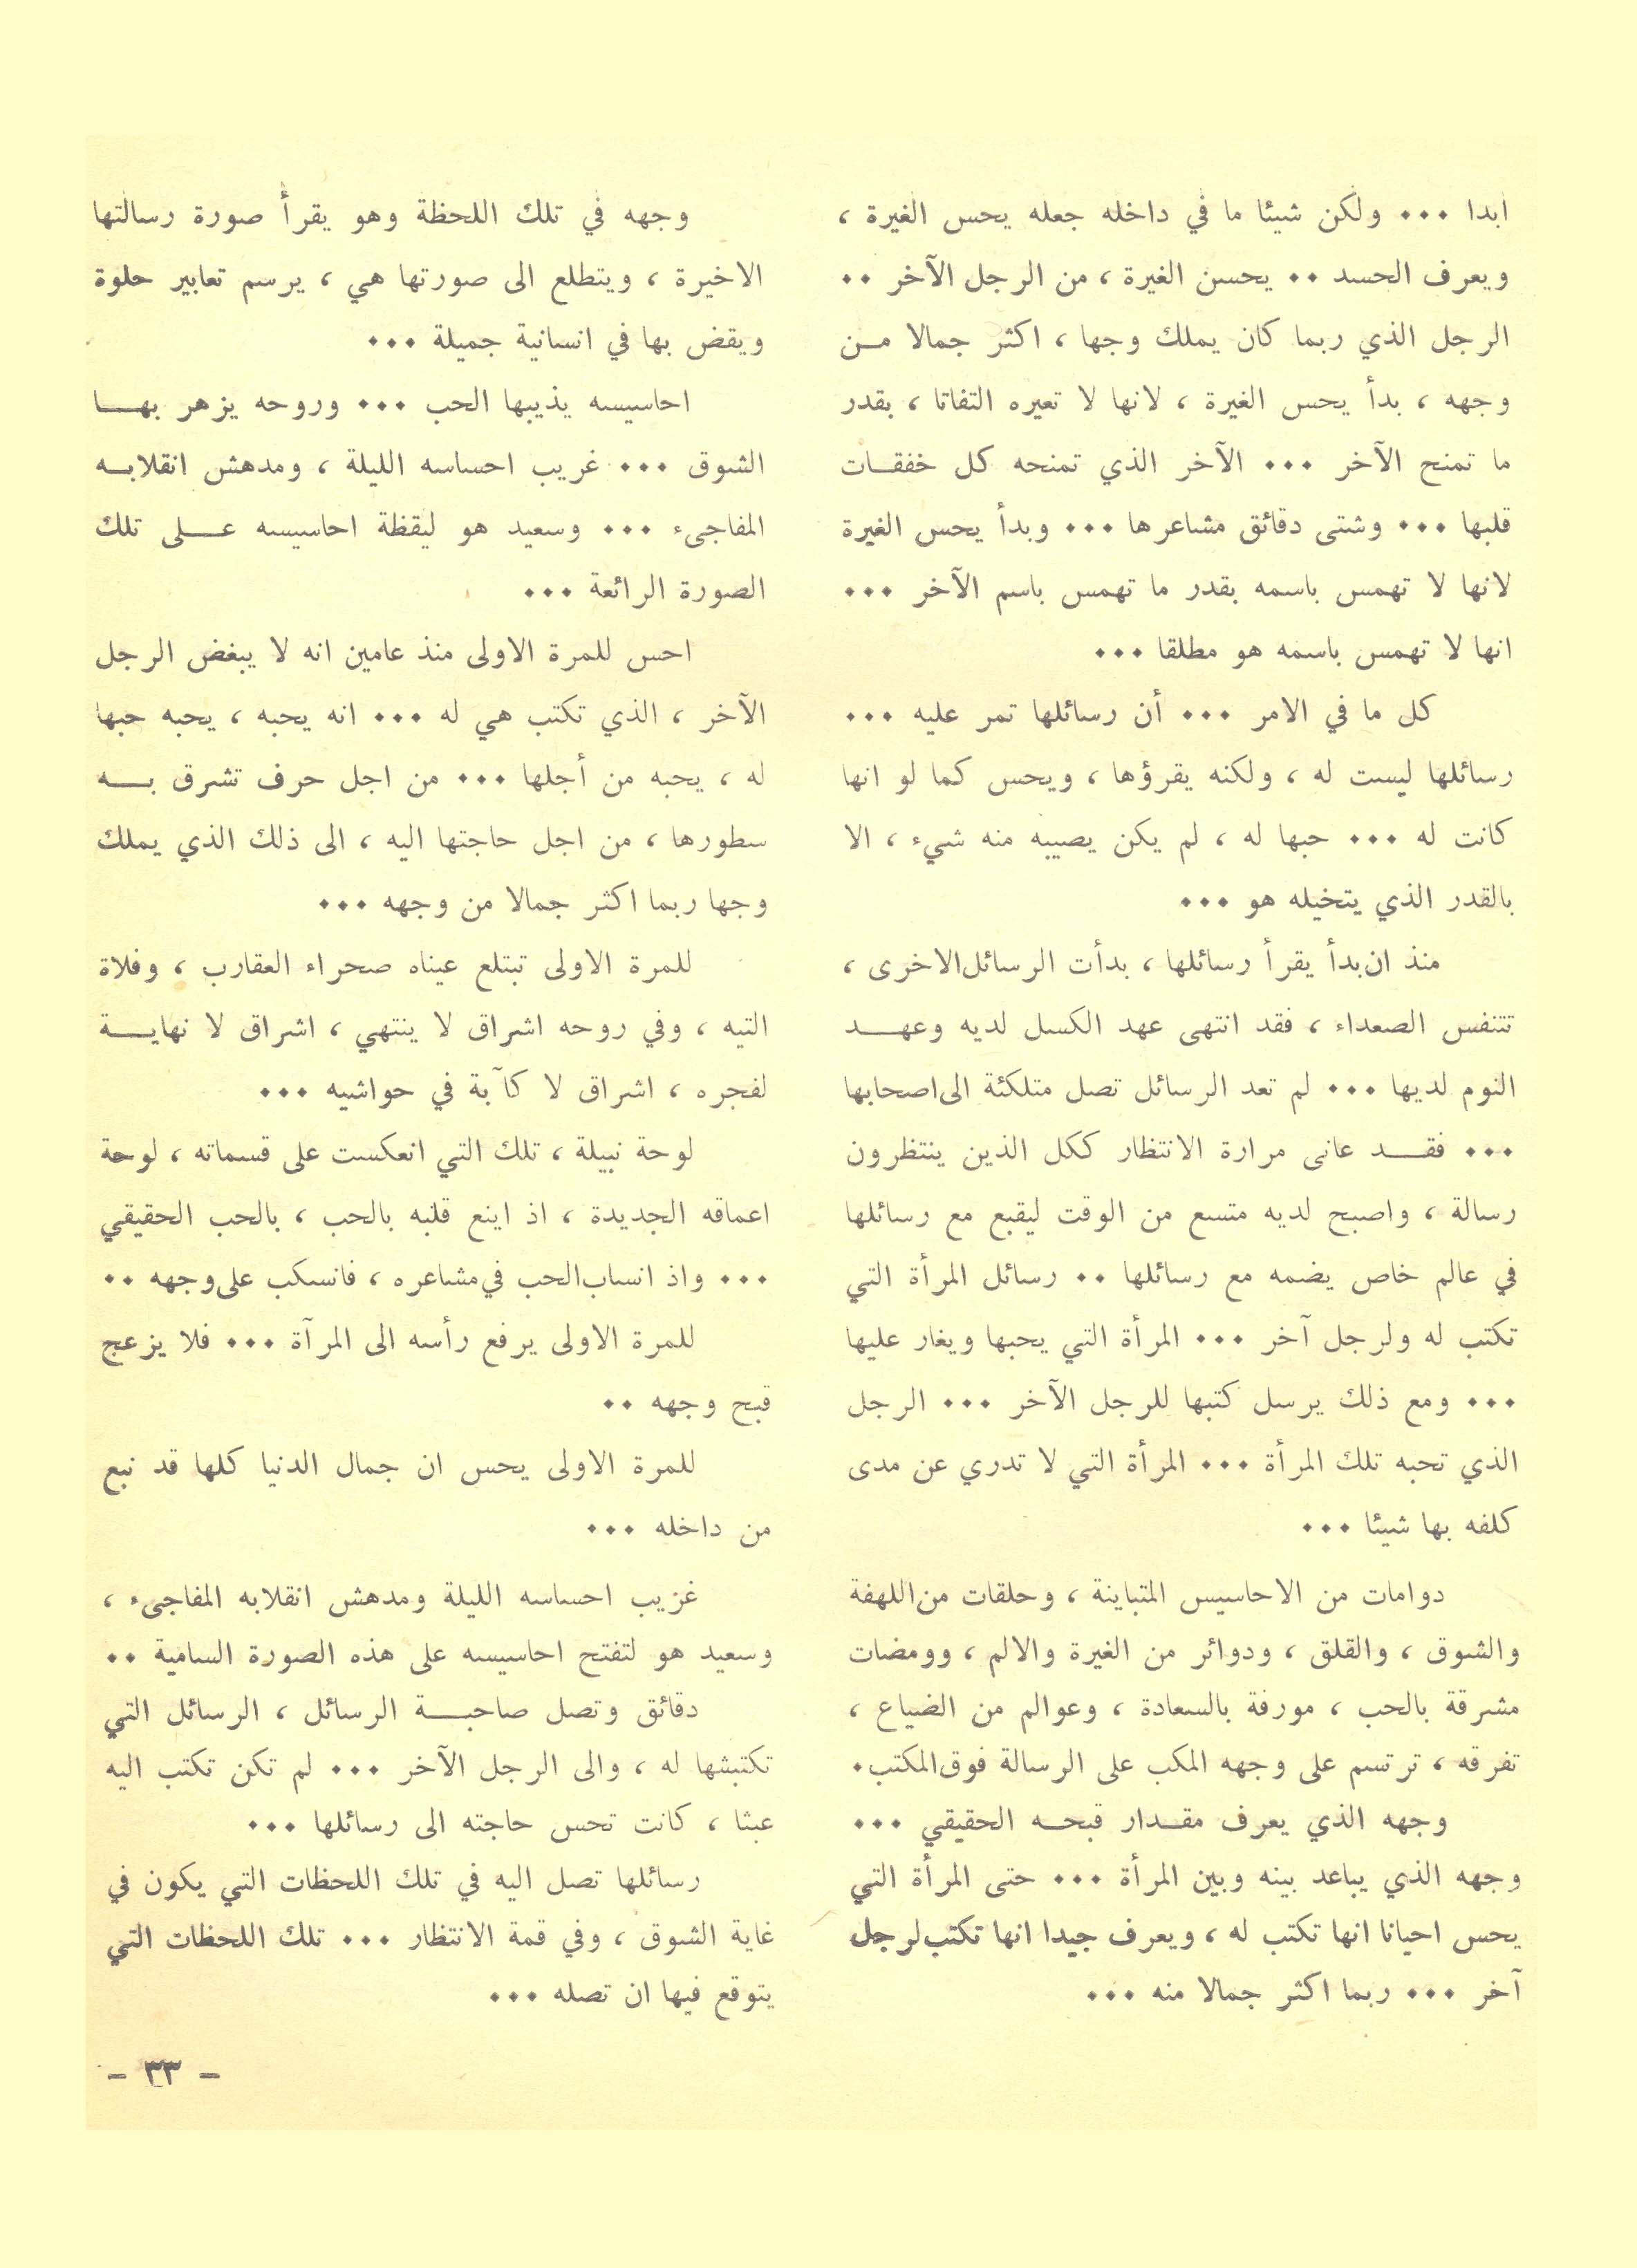 ابدا ... ولكن شيئا ما في داخله جعله يحس الغيرة ،
ويعرف الحسد .. يحسن الغيرة ، من الرجل الآخر ..
الرجل الذي ربما كان يملك وجها ، اكثر جمالا من
وجهه ، بدأ يحس الغيرة ، لانها لا تعيره التفاتا ، بقدر
ما تمنح الآخر ... الآخر الذي تمنحه كل خفقات
قلبها ... وشتى دقائق مشاعرها ... وبدأ يحس الغيرة
لانها لا تهمس باسمه بقدر ما تهمس باسم الآخر ...
انها لا تهمس باسمه هو مطلقا ...
كل ما في الامر ... أن رسائلها تمر عليه ...
رسائلها ليست له ، ولكنه يقرؤها ، ويحس كما لو انها
كانت له ... حبها له ، لم يكن يصيبه منه شيء ، الا
بالقدر الذي يتخيله هو ...
منذ ان بدأ يقرأ رسائلها ، بدأت الرسائل الاخرى ،
تتنفس الصعداء ، فقد انتهى عهد الكسل لديه وعهد
النوم لديها ... لم تعد الرسائل تصل متلكئة الى اصحابها
... فقد عانى مرارة الانتظار ككل الذين ينتظرون
رسالة ، واصبح لديه متسع من الوقت ليقبع مع رسائلها
في عالم خاص يضمه مع رسائلها .. رسائل المرأة التي
تكتب له ولرجل آخر ... المرأة التي يحبها ويغار عليها
... ومع ذلك يرسل كتبها للرجل الآخر ... الرجل
الذي تحبه تلك المرأة ... المرأة التي لا تدري عن مدى
كلفه بها شيئا ...
دوامات من الاحاسيس المتباينة ، وحلقات من اللهفة
والشوق ، والقلق ، ودوائر من الغيرة والالم ، وومضات
مشرقة بالحب ، مورفة بالسعادة ، وعوالم من الضياع ،
تفرقه ، ترتسم على وجهه المكب على الرسالة فوق المكتب.
وجهه الذي يعرف مقدار قبحه الحقيقي ...
وجهه الذي يباعد بينه وبين المرأة ... حتى المرأة التي
يحس احيانا انها تكتب له ، ويعرف جيدا انها تكتب لرجل
آخر ... ربما اكثر جمالا منه ...
وجهه في تلك اللحظة وهو يقرأ صورة رسالتها
الاخيرة ، ويتطلع الى صورتها هي ، يرسم تعابير حلوة
ويقض بها في انسانية جميلة ...
احاسيسه يذيبها الحب ... وروحه يزهر بها
الشوق ... غريب احساسه الليلة ، ومدهش انقلابه
المفاجىء ... وسعيد هو ليقظة احاسيسه على تلك
الصورة الرائعة ...
احس للمرة الاولى منذ عامين انه لا يبغض الرجل
الآخر ، الذي تكتب هي له ... انه يحبه ، يحبه حبها
له ، يحبه من أجلها ... من اجل حرف تشرق به
سطورها ، من اجل حاجتها اليه ، الى ذلك الذي يملك
وجها ربما اكثر جمالا من وجهه ...
للمرة الاولى تبتلع عيناه صحراء العقارب ، وفلاة
التيه ، وفي روحه اشراق لا ينتهي ، اشراق لا نهاية
لفجره ، اشراق لا كآبة في حواشيه ...
لوحة نبيلة ، تلك التي انعكست على قسماته ، لوحة
اعماقه الجديدة ، اذ اينع قلبه بالحب ، بالحب الحقيقي
... واذ انساب الحب في مشاعره ، فانسكب على وجهه ..
للمرة الاولى يرفع رأسه الى المرآة ... فلا يزعج
قبح وجهه ..
للمرة الاولى يحس ان جمال الدنيا كلها قد نبع
من داخله ...
غزيب احساسه الليلة ومدهش انقلابه المفاجىء ،
وسعيد هو لتفتح احاسيسه على هذه الصورة السامية ..
دقائق وتصل صاحبة الرسائل ، الرسائل التي
تكتبثها له ، والى الرجل الآخر ... لم تكن تكتب اليه
عبثا ، كانت تحس حاجته الى رسائلها ...
رسائلها تصل اليه في تلك اللحظات التي يكون في
غاية الشوق ، وفي قمة الانتظار ... تلك اللحظات التي
يتوقع فيها ان تصله ...
- ٣٣ -